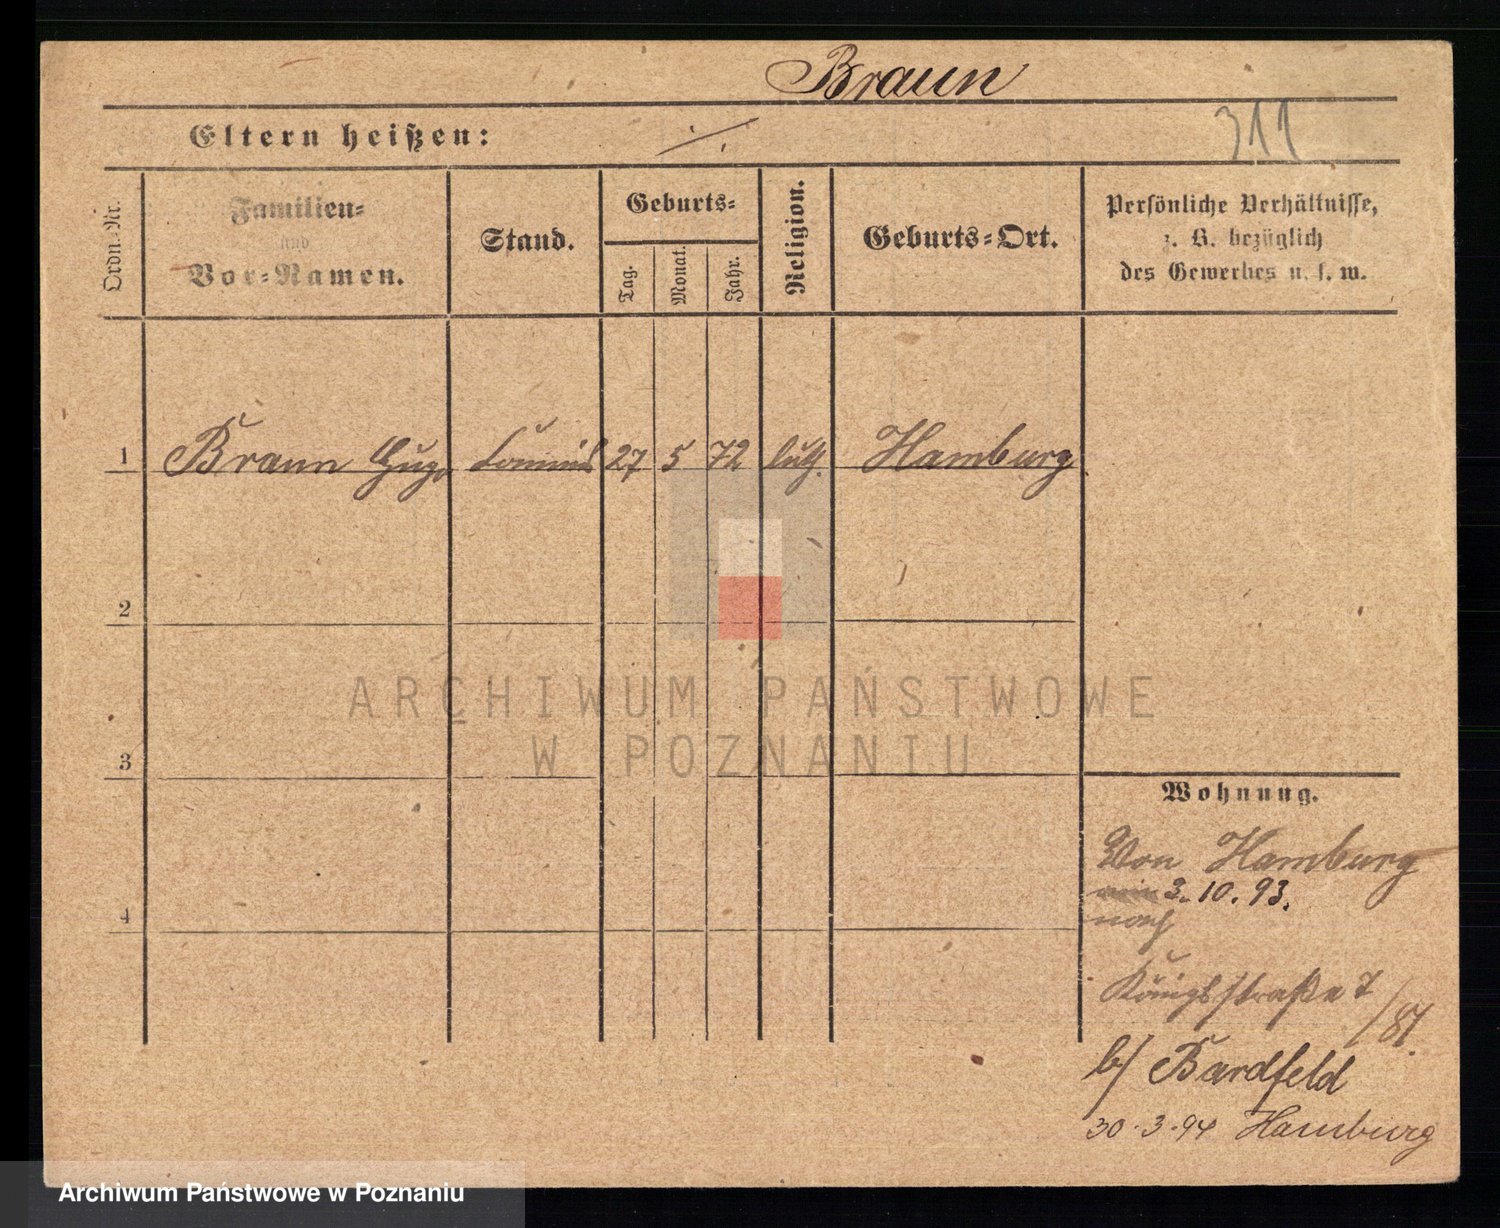 Braun
Eltern heißen: ./.
311
Ordn.-Nr.
Familien-
und
Vor-Namen.
Stand.
Geburts-
Tag.
Monat.
Jahr.
Religion.
Geburts-Ort.
Persönliche Verhältnisse,
z. B. bezüglich
des Gewerbes u. s. w.
1 Braun Hugo Commis 27 5 72 luth. Hamburg
2
3
4
ARCHIWUM PAŃSTWOWE
W POZNANIU
Wohnung.
Von Hamburg
3. 10. 93.
nach
Königsstraße 7
/87.
b/ Bardfeld
30.3.94 Hamburg
Archiwum Państwowe w Poznaniu